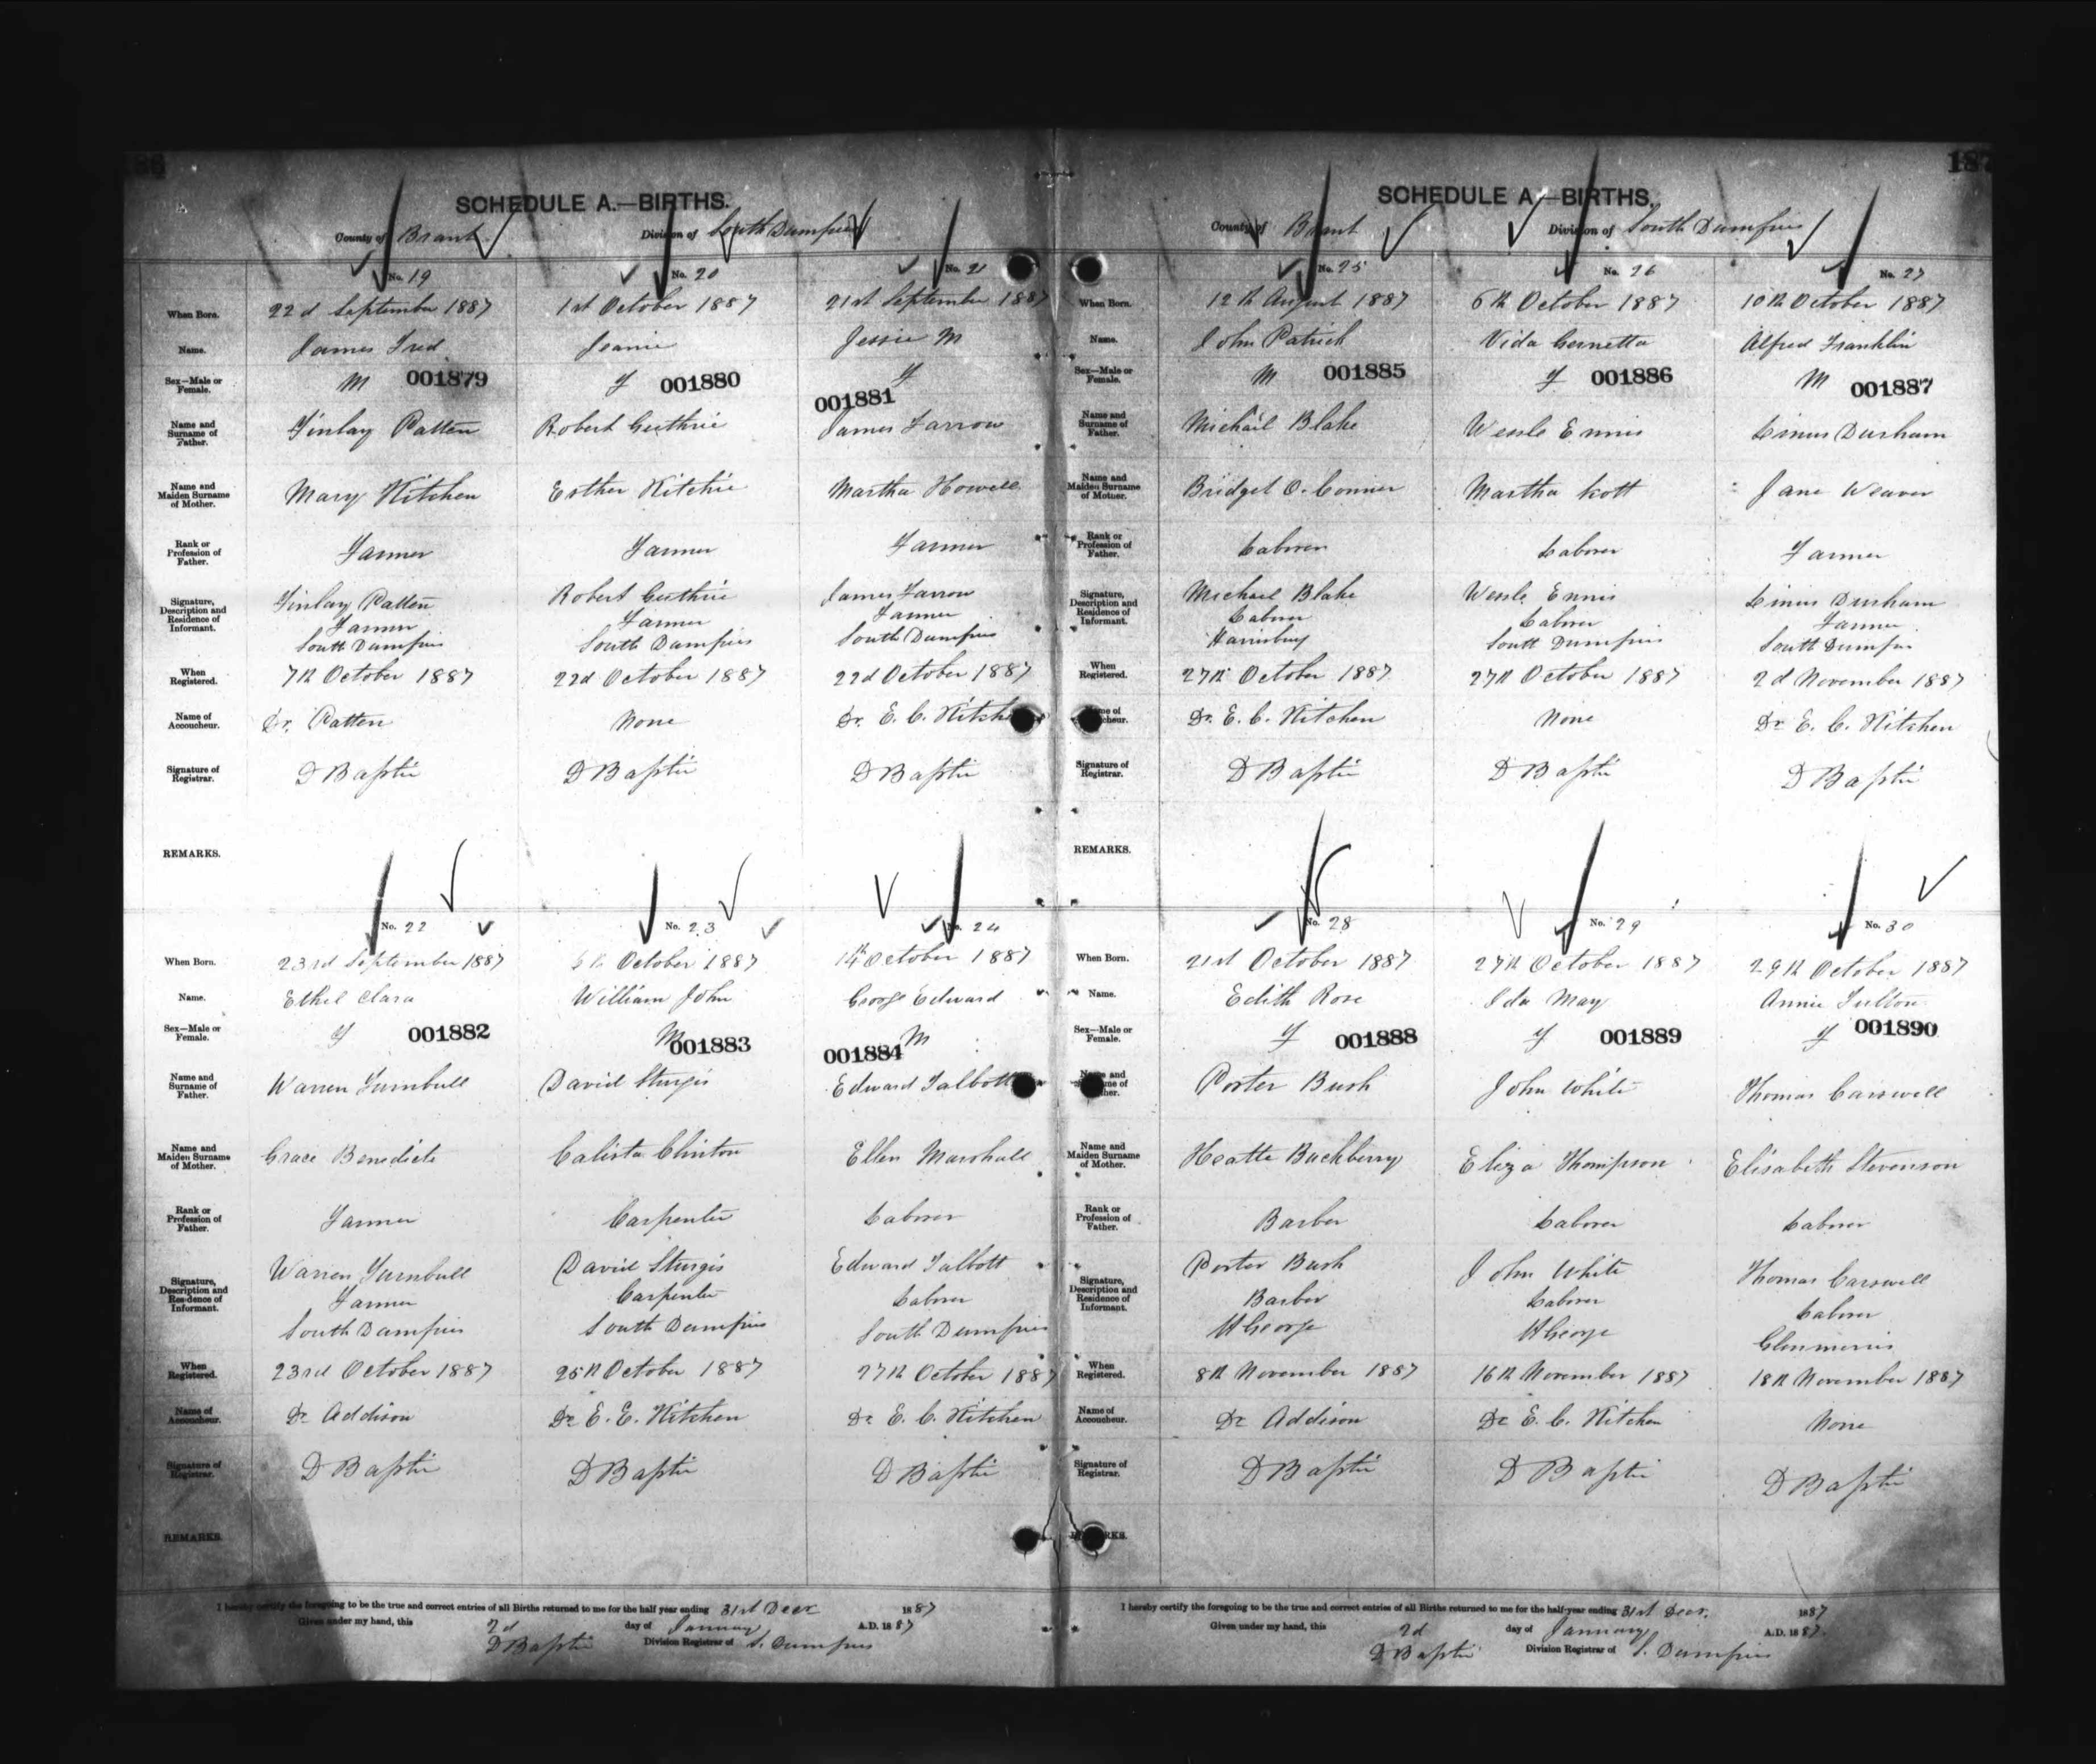 186
SCHEDULE A.—BIRTHS.
County of Brant Division of South Dumfries
No. 19 No. 20 No. 21
When Born. 22d September 1887 1st October 1887 21st September 1887
Name. James Fred Jeanie Jessie M
Sex—Male or Female. M 001879 F 001880 F 001881
Name and Surname of Father. Finlay Patten Robert Guthrie James Farrow
Name and Maiden Surname of Mother. Mary Kitchen Esther Ritchie Martha Howell
Rank or Profession of Father. Farmer Farmer Farmer
Signature, Description and Residence of Informant. Finlay Patten Robert Guthrie James Farrow
Farmer Farmer Farmer
South Dumfries South Dumfries South Dumfries
When Registered. 7th October 1887 22d October 1887 22d October 1887
Name of Accoucheur. Dr. Patten None Dr. E. C. Kitchen
Signature of Registrar. D Baptie D Baptie D Baptie
REMARKS.
No. 22 No. 23 No. 24
When Born. 23rd September 1887 October 1887 14th October 1887
Name. Ethel Clara William John George Edward
Sex—Male or Female. F 001882 M 001883 M 001884
Name and Surname of Father. Warren Turnbull David Sturgis Edward Talbott
Name and Maiden Surname of Mother. Grace Benedicte Calista Clinton Ellen Marshall
Rank or Profession of Father. Farmer Carpenter Laborer
Signature, Description and Residence of Informant. Warren Turnbull David Sturgis Edward Talbott
Farmer Carpenter Laborer
South Dumfries South Dumfries South Dumfries
When Registered. 23rd October 1887 25th October 1887 27th October 1887
Name of Accoucheur. Dr Addison Dr E. C. Kitchen Dr E. C. Kitchen
Signature of Registrar. D Baptie D Baptie D Baptie
REMARKS.
I hereby certify the foregoing to be the true and correct entries of all Births returned to me for the half year ending 31st Decr 1887
Given under my hand, this 2d day of January A.D. 1887
D Baptie Division Registrar of S. Dumfries
187
SCHEDULE A.—BIRTHS.
County of Brant Division of South Dumfries
No. 25 No. 26 No. 27
When Born. 12th August 1887 6th October 1887 10th October 1887
Name. John Patrick Vida Gernetta Alfred Franklin
Sex—Male or Female. M 001885 F 001886 M 001887
Name and Surname of Father. Michael Blake Wessle Ennis Linus Durham
Name and Maiden Surname of Mother. Bridget O. Conner Martha Kott Jane Weaver
Rank or Profession of Father. Laborer Laborer Farmer
Signature, Description and Residence of Informant. Michael Blake Wessle Ennis Linus Durham
Laborer Laborer Farmer
Harrisburg South Dumfries South Dumfries
When Registered. 27th October 1887 27th October 1887 2d November 1887
Name of Accoucheur. Dr. E. C. Kitchen None Dr E. C. Kitchen
Signature of Registrar. D Baptie D Baptie D Baptie
REMARKS.
No. 28 No. 29 No. 30
When Born. 21st October 1887 27th October 1887 29th October 1887
Name. Edith Rose Ida May Annie Fulton
Sex—Male or Female. F 001888 F 001889 F 001890
Name and Surname of Father. Porter Bush John White Thomas Carswell
Name and Maiden Surname of Mother. Heatte Buckberry Eliza Thompson Elisabeth Stevenson
Rank or Profession of Father. Barber Laborer Laborer
Signature, Description and Residence of Informant. Porter Bush John White Thomas Carswell
Barber Laborer Laborer
St George St George Glenmorris
When Registered. 8th November 1887 16th November 1887 18th November 1887
Name of Accoucheur. Dr Addison Dr E. C. Kitchen None
Signature of Registrar. D Baptie D Baptie D Baptie
REMARKS.
I hereby certify the foregoing to be the true and correct entries of all Births returned to me for the half-year ending 31st Decr. 1887
Given under my hand, this 2d day of January A.D. 1887.
D Baptie Division Registrar of S. Dumfries